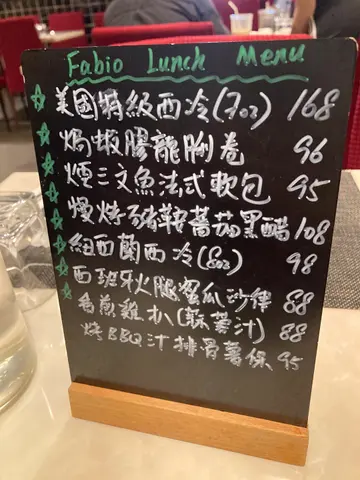 Fabio Lunch Menu
美國特級西冷(7oz) 168
焗板腸龍脷卷 96
煙三文魚法式軟包 95
慢烤豬鞍蕃茄黑醋 108
紐西蘭西冷(8oz) 98
西班牙火腿蜜瓜沙律 88
香煎雞扒(蘇蕾汁) 88
烤BBQ汁排骨薯條 95